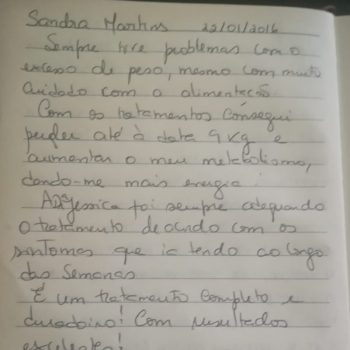 Sandra Martins 22/01/2016
Sempre tive problemas com o
excesso de peso, mesmo com muito
cuidado com a alimentação
Com os tratamentos consegui
perder até à data 9 Kg e
aumentar o meu metabolismo,
dando-me mais energia.
A Jessica foi sempre adequando
o tratamento de acordo com os
sintomas que ia tendo ao longo
das Semanas
É um tratamento completo e
duradoiro! Com resultados
excelentes!